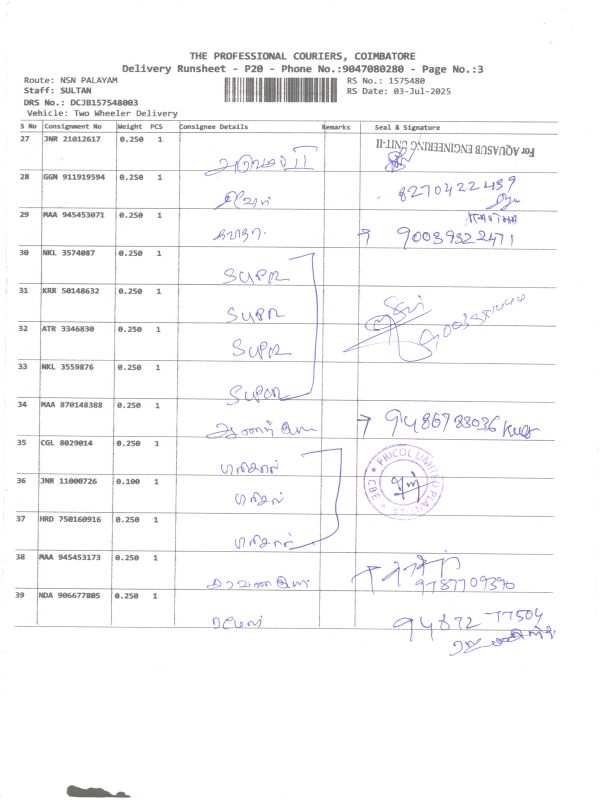 THE PROFESSIONAL COURIERS, COIMBATORE
Delivery Runsheet - P20 - Phone No.:9047080280 - Page No.:3
Route: NSN PALAYAM RS No.: 1575480
Staff: SULTAN RS Date: 03-Jul-2025
DRS No.: DCJB157548003
Vehicle: Two Wheeler Delivery
S No Consignment No Weight PCS Consignee Details Remarks Seal & Signature
27 JNR 21012617 0.250 1 For AQUASUB ENGINEERING UNIT-II
28 GGN 911919594 0.250 1 8270422439
29 MAA 945453071 0.250 1 KAVITHA
→ 90039322471
30 NKL 3574087 0.250 1
SUPR
31 KRR 50148632 0.250 1
SUPR
32 ATR 3346830 0.250 1
SUPR
33 NKL 3559876 0.250 1
SUPR
34 MAA 870148388 0.250 1 → 9486783036
35 CGL 8029014 0.250 1
பிரிகால்
PRICOL LIMITED PLANT-
CBE
36 JNR 11000726 0.100 1
பிரிகால்
37 HRD 750160916 0.250 1
பிரிகால்
38 MAA 945453173 0.250 1
9787709390
39 NDA 906677805 0.250 1
ரமேஷ் 94872 77504